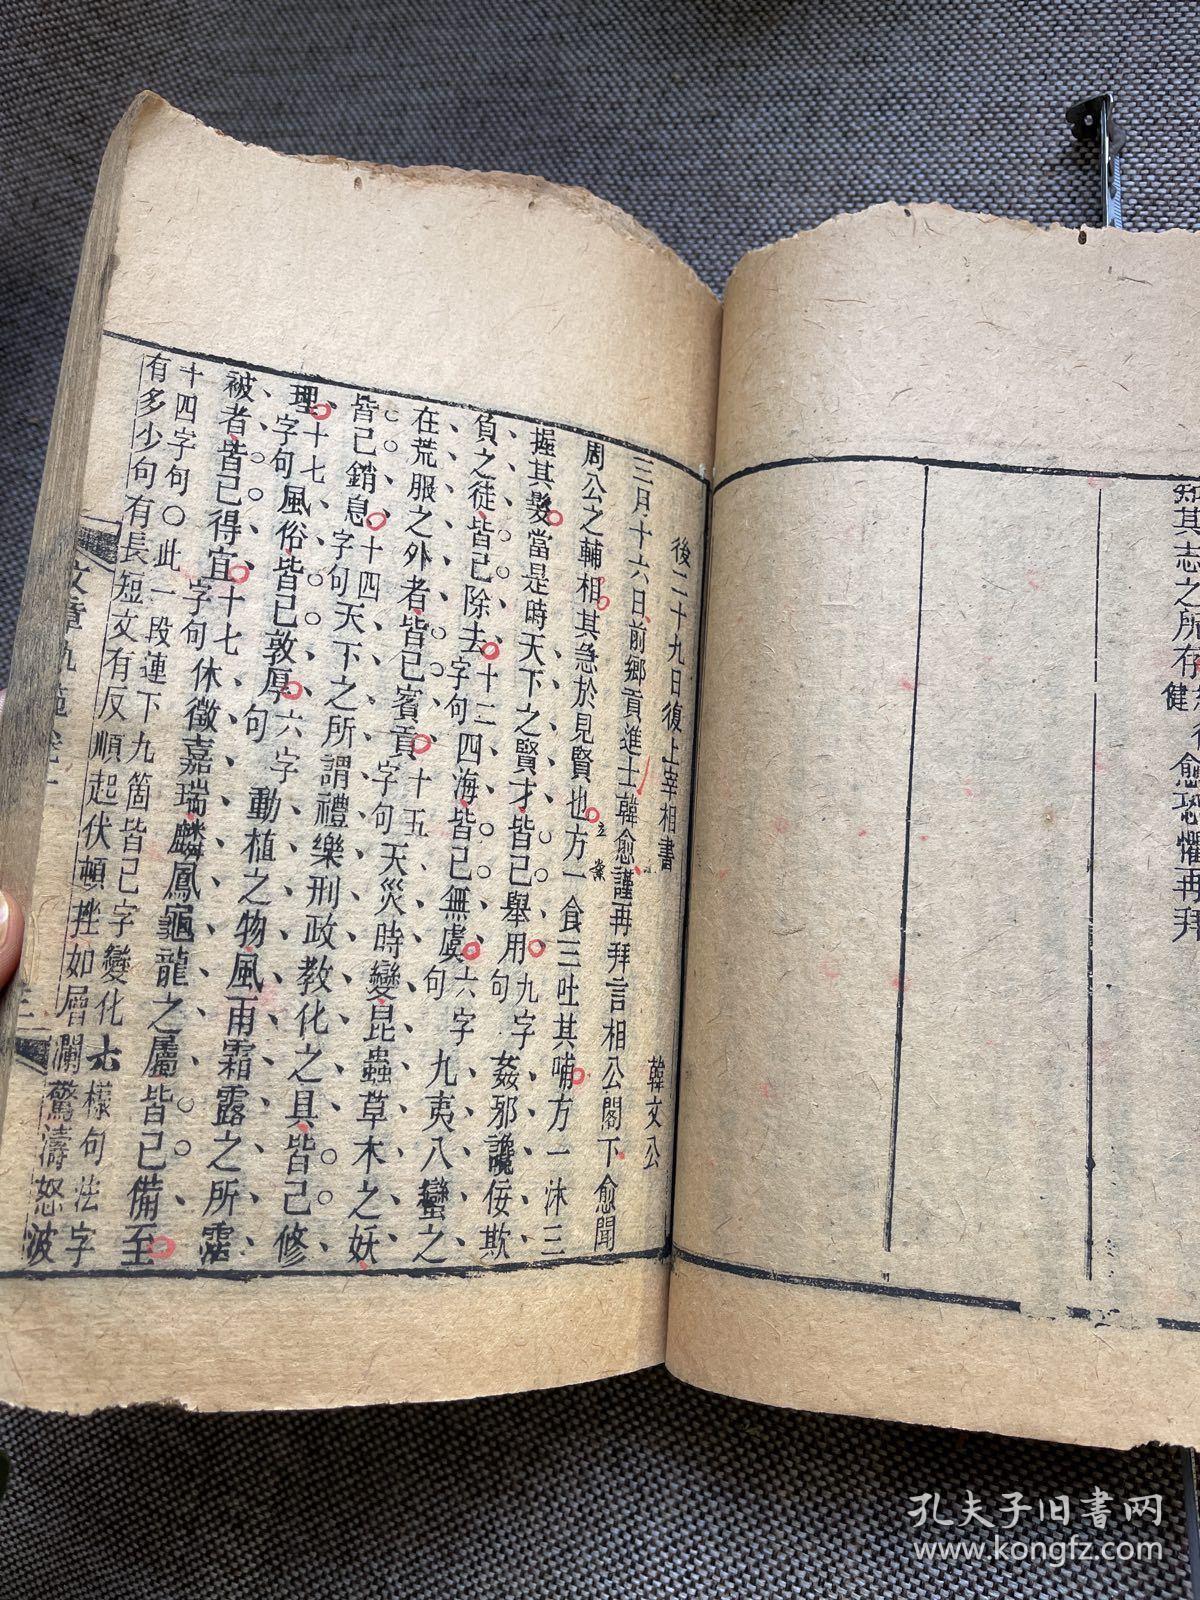 其志之所存
健
愈恐懼再拜
後二十九日復上宰相書
韓文公
三月十六日前鄉貢進士韓愈謹再拜言相公閣下愈聞
周公之輔相其急於見賢也方一食三吐其哺方一沐三
握其髮當是時天下之賢才皆已舉用九字句姦邪讒佞欺
負之徒皆已除去十二字句四海皆已無虞六字句九夷八蠻之
在荒服之外者皆已賓貢十五字句天災時變昆蟲草木之妖
皆已銷息十四字句天下之所謂禮樂刑政教化之具皆已修
理十七字句風俗皆已敦厚六字句動植之物風雨霜露之所霑
被者皆已得宜十七字句休徵嘉瑞麟鳳龜龍之屬皆已備至
十四字句○此一段連下九箇皆已字變化六樣句法字
有多少句有長短文有反順起伏頓挫如層瀾驚濤怒波
文章軌範卷一
三
孔夫子旧書网
www.kongfz.com